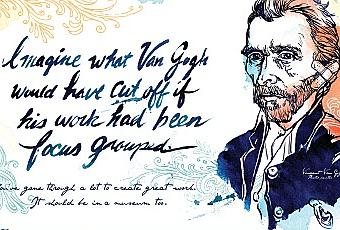 Imagine what Van Gogh
would have cut off if
his work had been
focus grouped.
You've gone through a lot to create great work.
It should be in a museum too.
Vincent Van Gogh